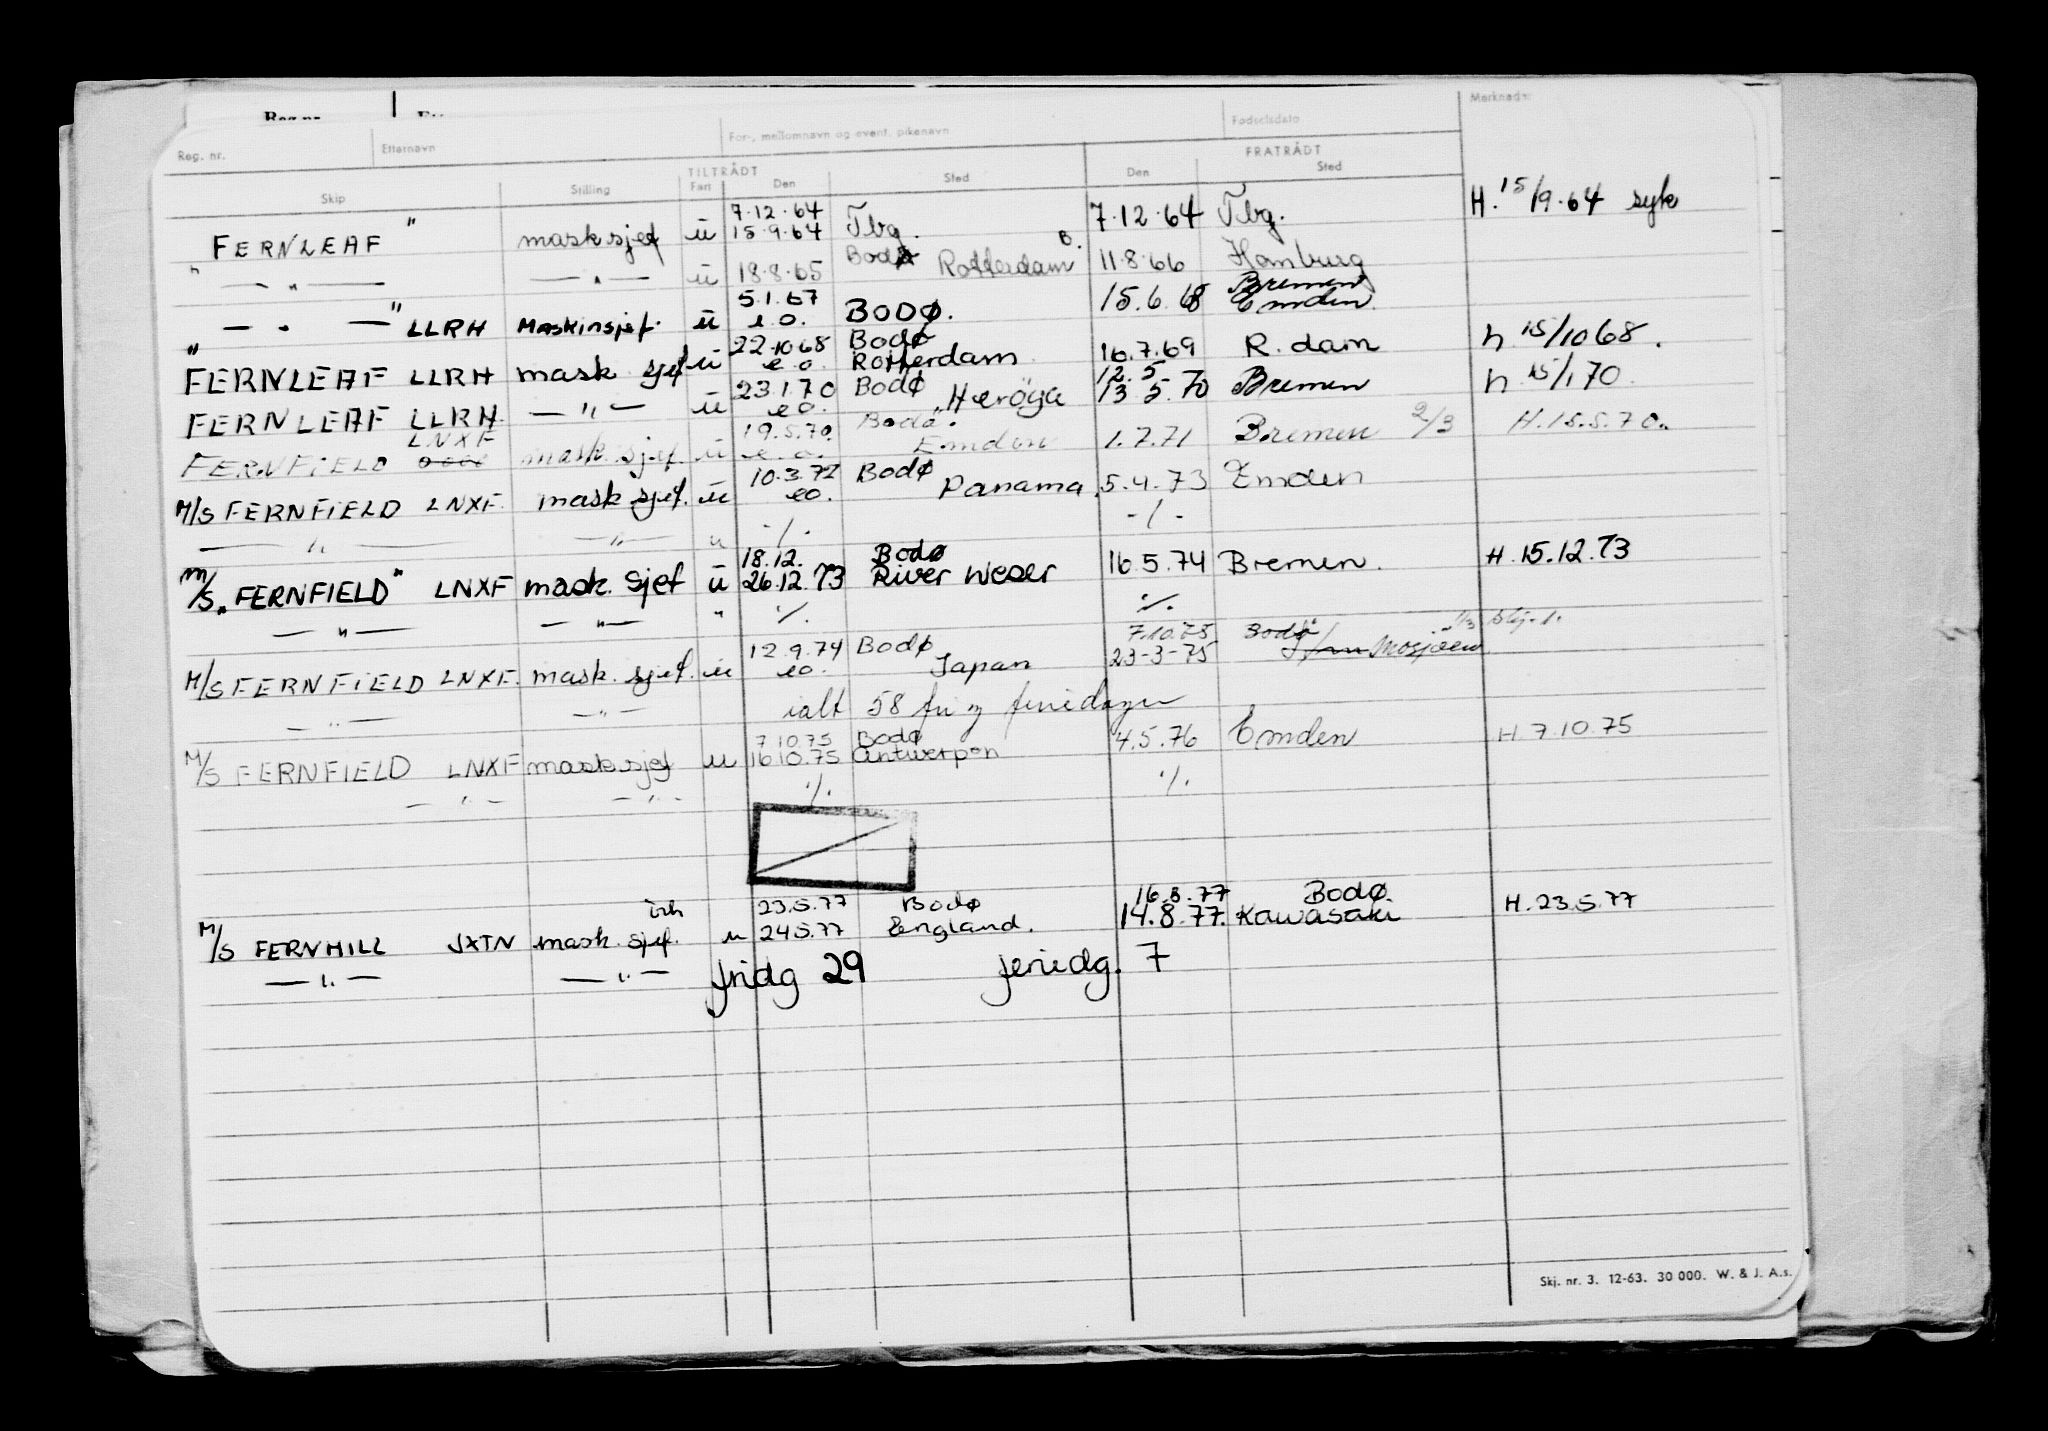 Reg. nr. Etternavn For-, mellomnavn og event. pikenavn Fødselsdato Merknader
TILTRÅDT FRATRÅDT
Skip Stilling Fart Den Sted Den Sted
7.12.64
FERNLEAF" mask sjef u 15.9.64 Tbg. 7.12.64 Tbg. H. 15/9.64 syk
" — " — — " — u 18.8.65 Bodø Rotterdam B. 11.8.66 Hamburg
5.1.67 Bremen
— " — " LLRH Maskinsjef. u e.o. BODØ. 15.6.68 Emden.
22.10.68 Bodø
"FERNLEAF LLRH mask sjef u e.o. Rotterdam 16.7.69 R.dam h 15/10 68.
23.1.70 Bodø 12.5
FERNLEAF LLRH — " — u eo. Herøya 13.5.70 Bremen h 15/1 70.
LNXF 19.5.70 Bodø.
FERNFIELD mask. sjef. u e.o. Emden 1.7.71 Bremen 2/3 H.15.5.70.
10.3.72 Bodø
M/S FERNFIELD LNXF. mask sjef. u eo. Panama. 5.4.73 Emden
— " — — " — u ./. -/-
18.12. Bodø
M/S „FERNFIELD" LNXF mask. sjef u 26.12.73 River Weser 16.5.74 Bremen. H.15.12.73
— " — — " — " ./. ./.
12.9.74 Bodø 7.10.75 Bodø
M/S FERNFIELD LNXF. mask. sjef. u eo. Japan 23-3-75 Mosjøen
— " — — " — ialt 58 fri og feriedager
7.10.75 Bodø
M/S FERNFIELD LNXF mask sjef u 16.10.75 Antwerpen 4.5.76 Emden H.7.10.75
— " — — " — ./. ./.
23.5.77 Bodø 16.8.77 Bodø.
M/S FERNHILL JXTN mask. sjef. u 24.5.77 England. 14.8.77. Kawasaki H.23.5.77
— " — — " — fridg 29 feriedg. 7
Skj. nr. 3. 12-63. 30 000. W. & J. A.s.